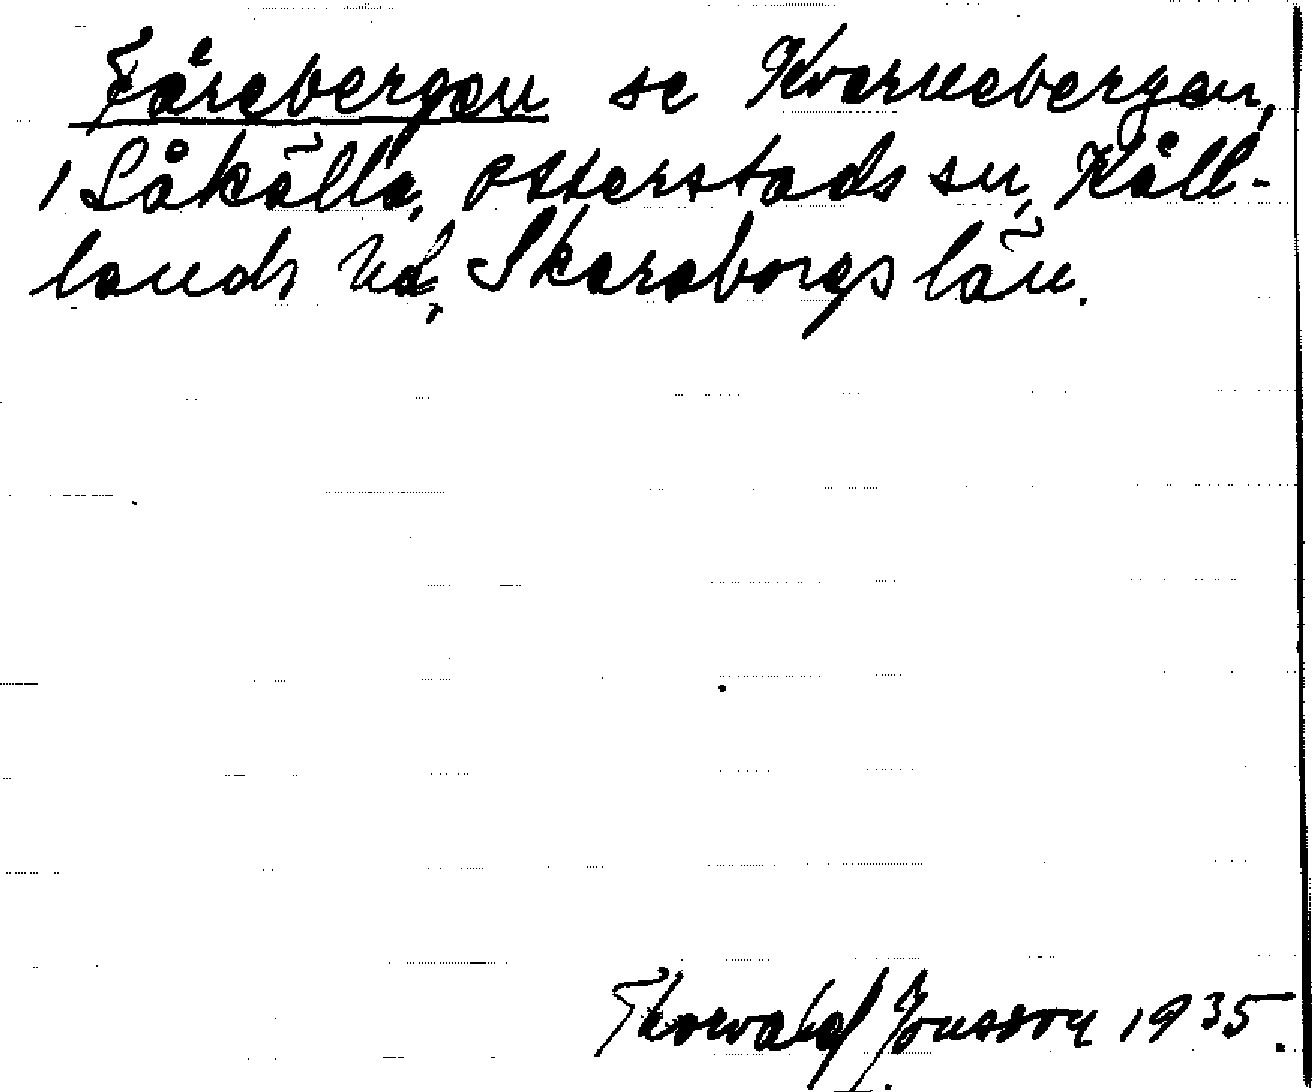 Fårebergen se Kvarnebergen,
1 Låkälla, Otterstads sn, Kåll-
lands hd, Skaraborgs län.
Thorvald Jonsson 1935.